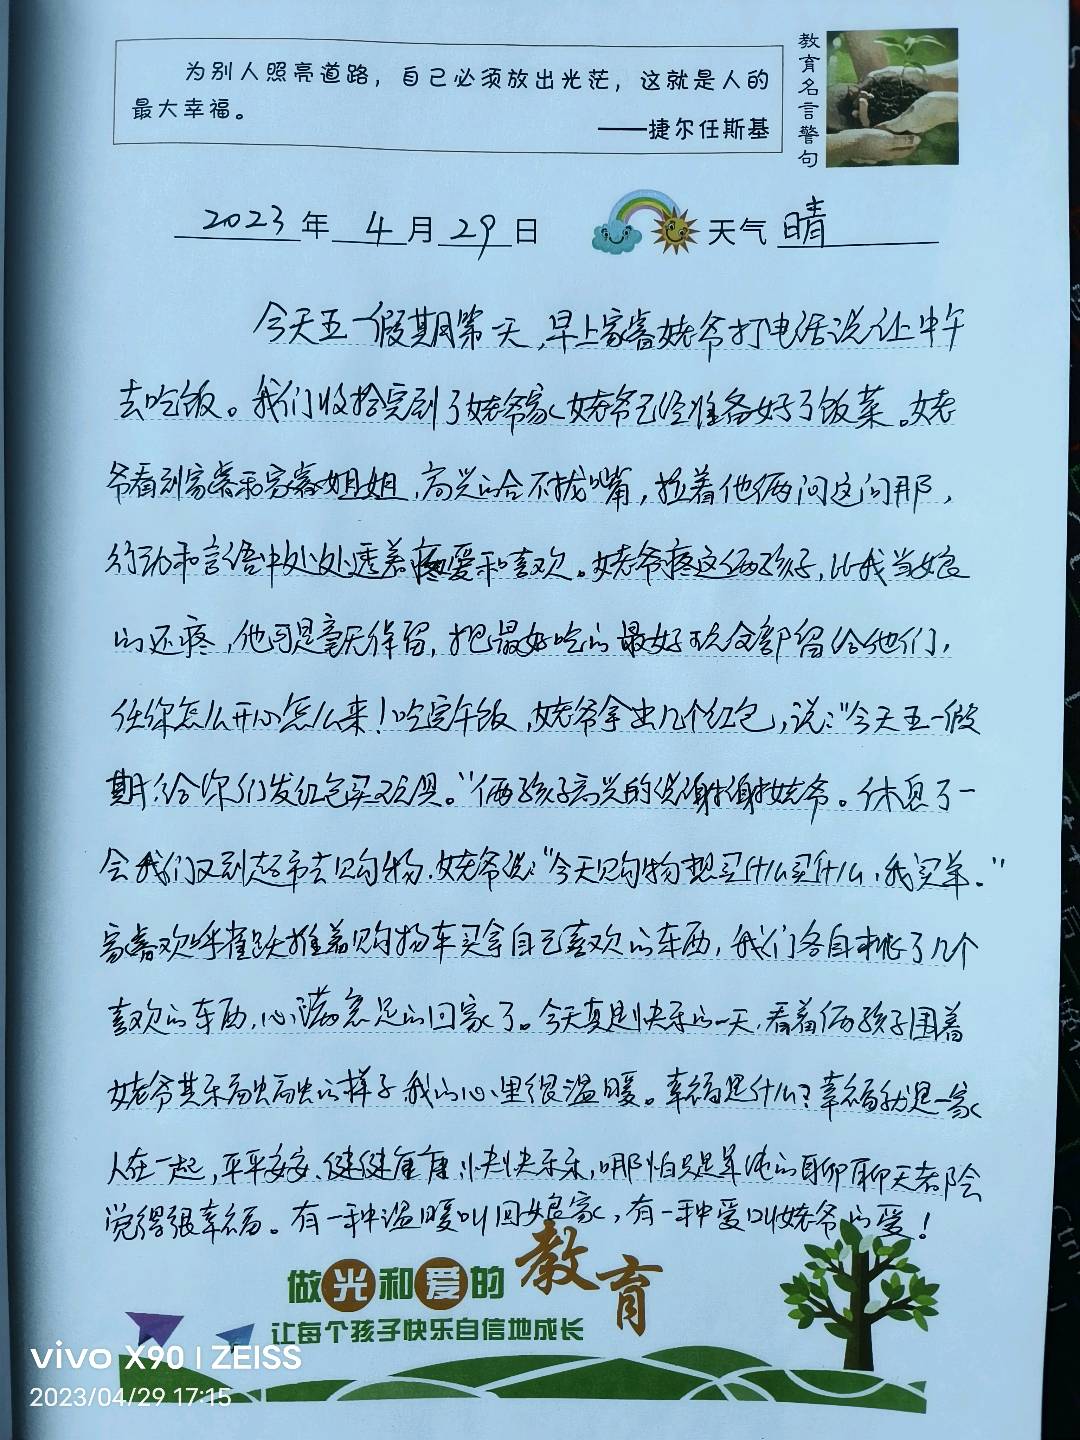 为别人照亮道路，自己必须放出光茫，这就是人的
最大幸福。
——捷尔任斯基
教育名言警句
2023年 4月29日 天气 晴
今天五一假期第一天，早上家睿姥爷打电话说让中午
去吃饭。我们收拾完到了姥爷家，姥爷已经准备好了饭菜。姥
爷看到家睿和家睿姐姐，高兴的合不拢嘴，拉着他俩问这问那，
行动和言语中处处透着疼爱和喜欢。姥爷疼这俩孩子，比我当娘
的还疼，他可是毫无保留，把最好吃的最好玩全部留给他们，
任你怎么开心怎么来！吃完午饭，姥爷拿出几个红包，说："今天五一假
期给你们发红包买玩具。"俩孩子高兴的说谢谢姥爷。休息了一
会我们又到超市去购物，姥爷说："今天购物想买什么买什么，我买单。"
家睿欢呼雀跃推着购物车买拿自己喜欢的东西，我们各自挑了几个
喜欢的东西，心满意足的回家了。今天真是快乐的一天，看着俩孩子围着
姥爷其乐融融的样子我的心里很温暖。幸福是什么？幸福就是一家
人在一起，平平安安、健健康康、快快乐乐，哪怕只是单纯的聊聊天都会
觉得很幸福。有一种温暖叫回娘家，有一种爱叫姥爷的爱！
做光和爱的教育
让每个孩子快乐自信地成长
vivo X90 | ZEISS
2023/04/29 17:15